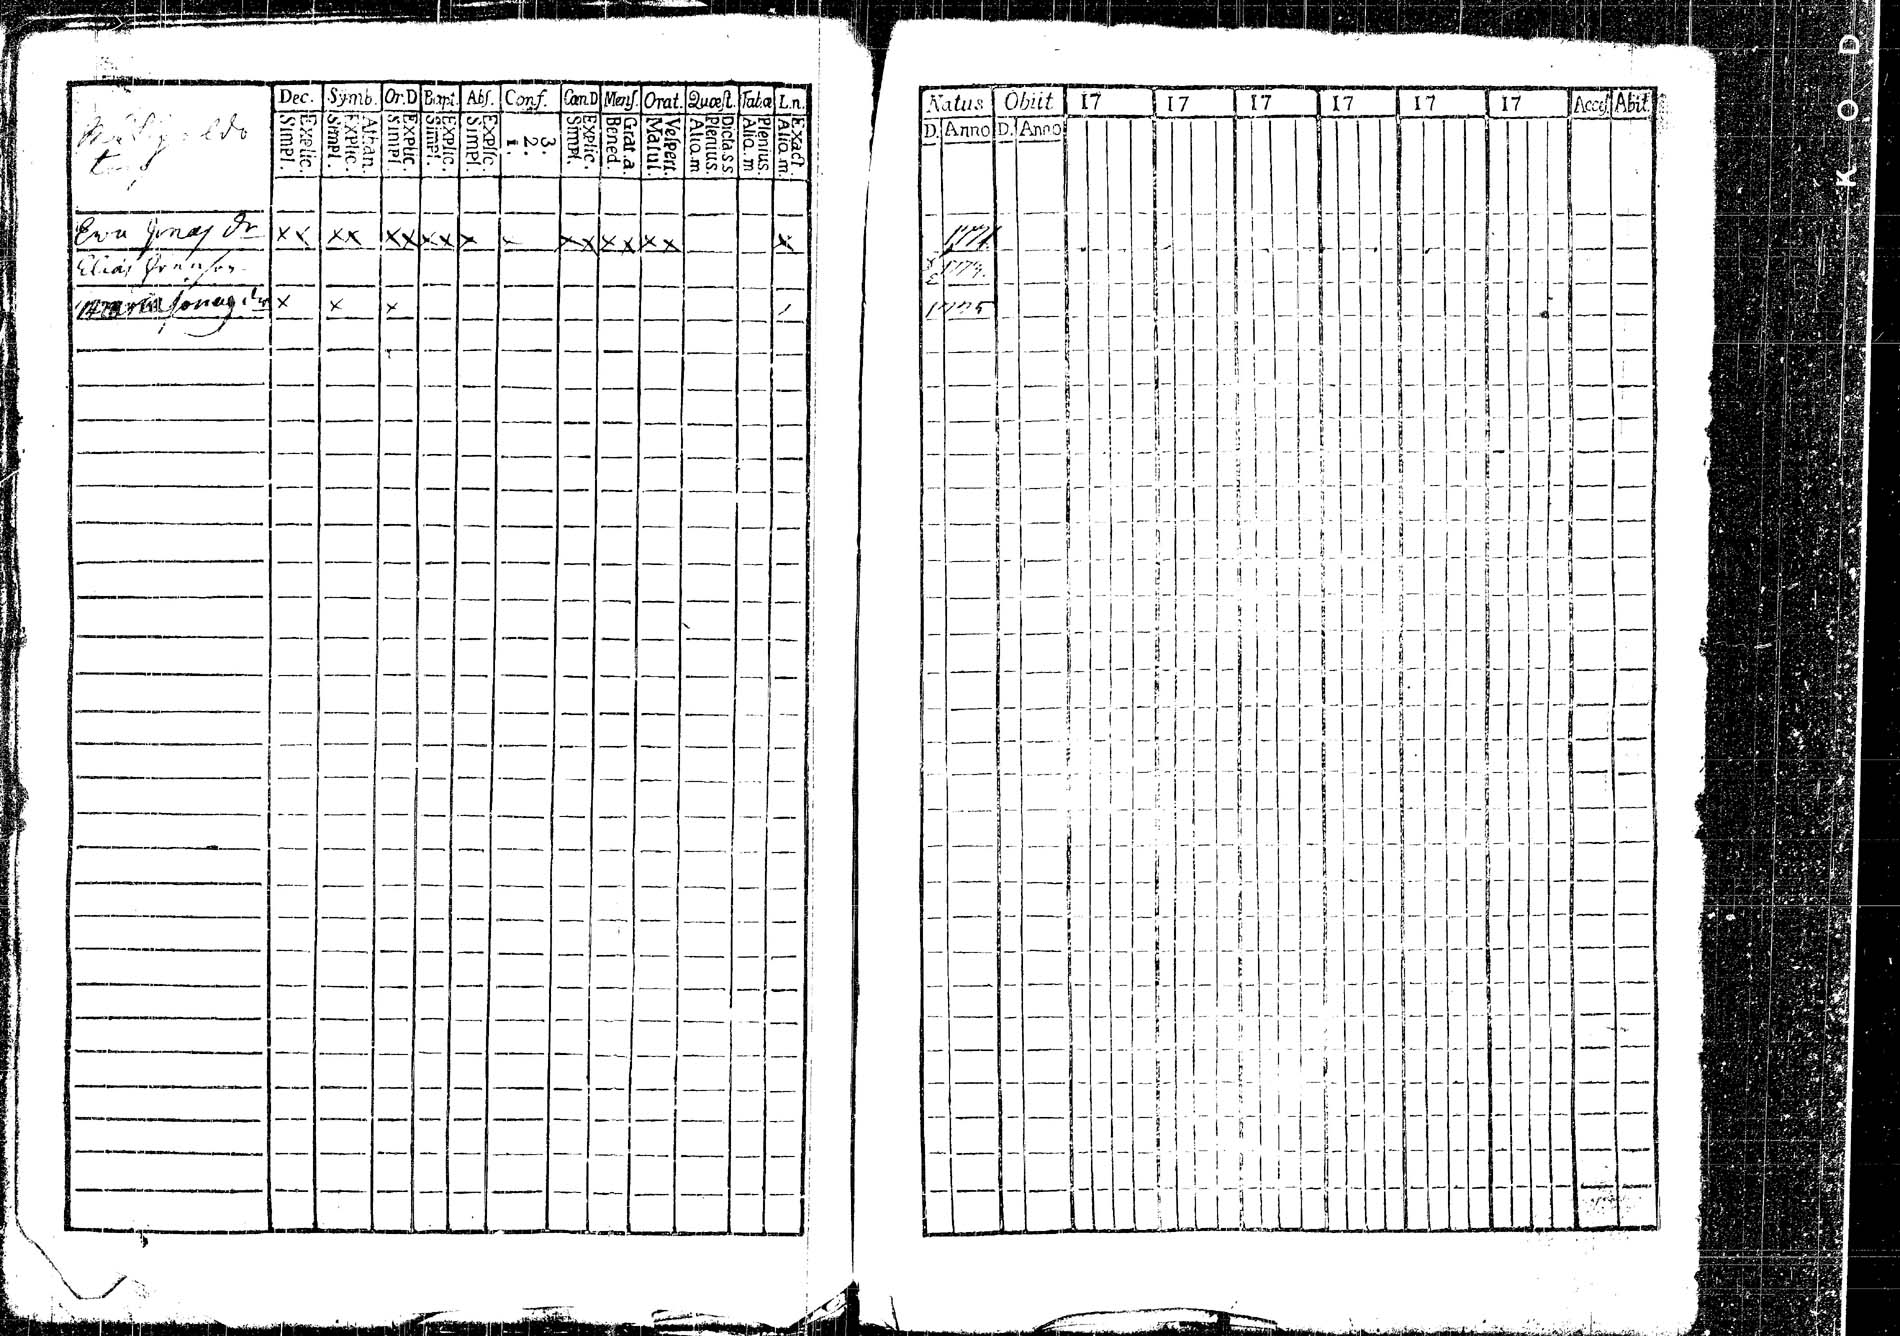 Dec. Symb. Or.D Bapt. Abſ. Conf. CœnD Menſ. Orat. Quæſt. Tabæ L.n.
Simpl. Explic.
Simpl. Explic. Athan.
Simpl. Explic.
Simpl. Explic.
Simpl. Explic.
1. 2. 3.
Simpl. Explic.
Bened. Grat.a.
Matut. Veſpert.
Aliq.m Plenius. Dicta S S
Aliq.m Plenius.
Aliq.m. Exact.
Ewa Jonas dr x x x x x x x x x x x x x x x x
Elias
Maria Jonas dr x x x
Natus Obiit 17 17 17 17 17 17 Acceſ Abit
D. Anno D. Anno
1771
1774.
1775
KOD